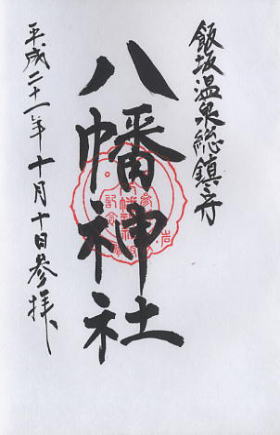 飯坂温泉総鎮守
八幡神社
平成二十一年十月十日参拝